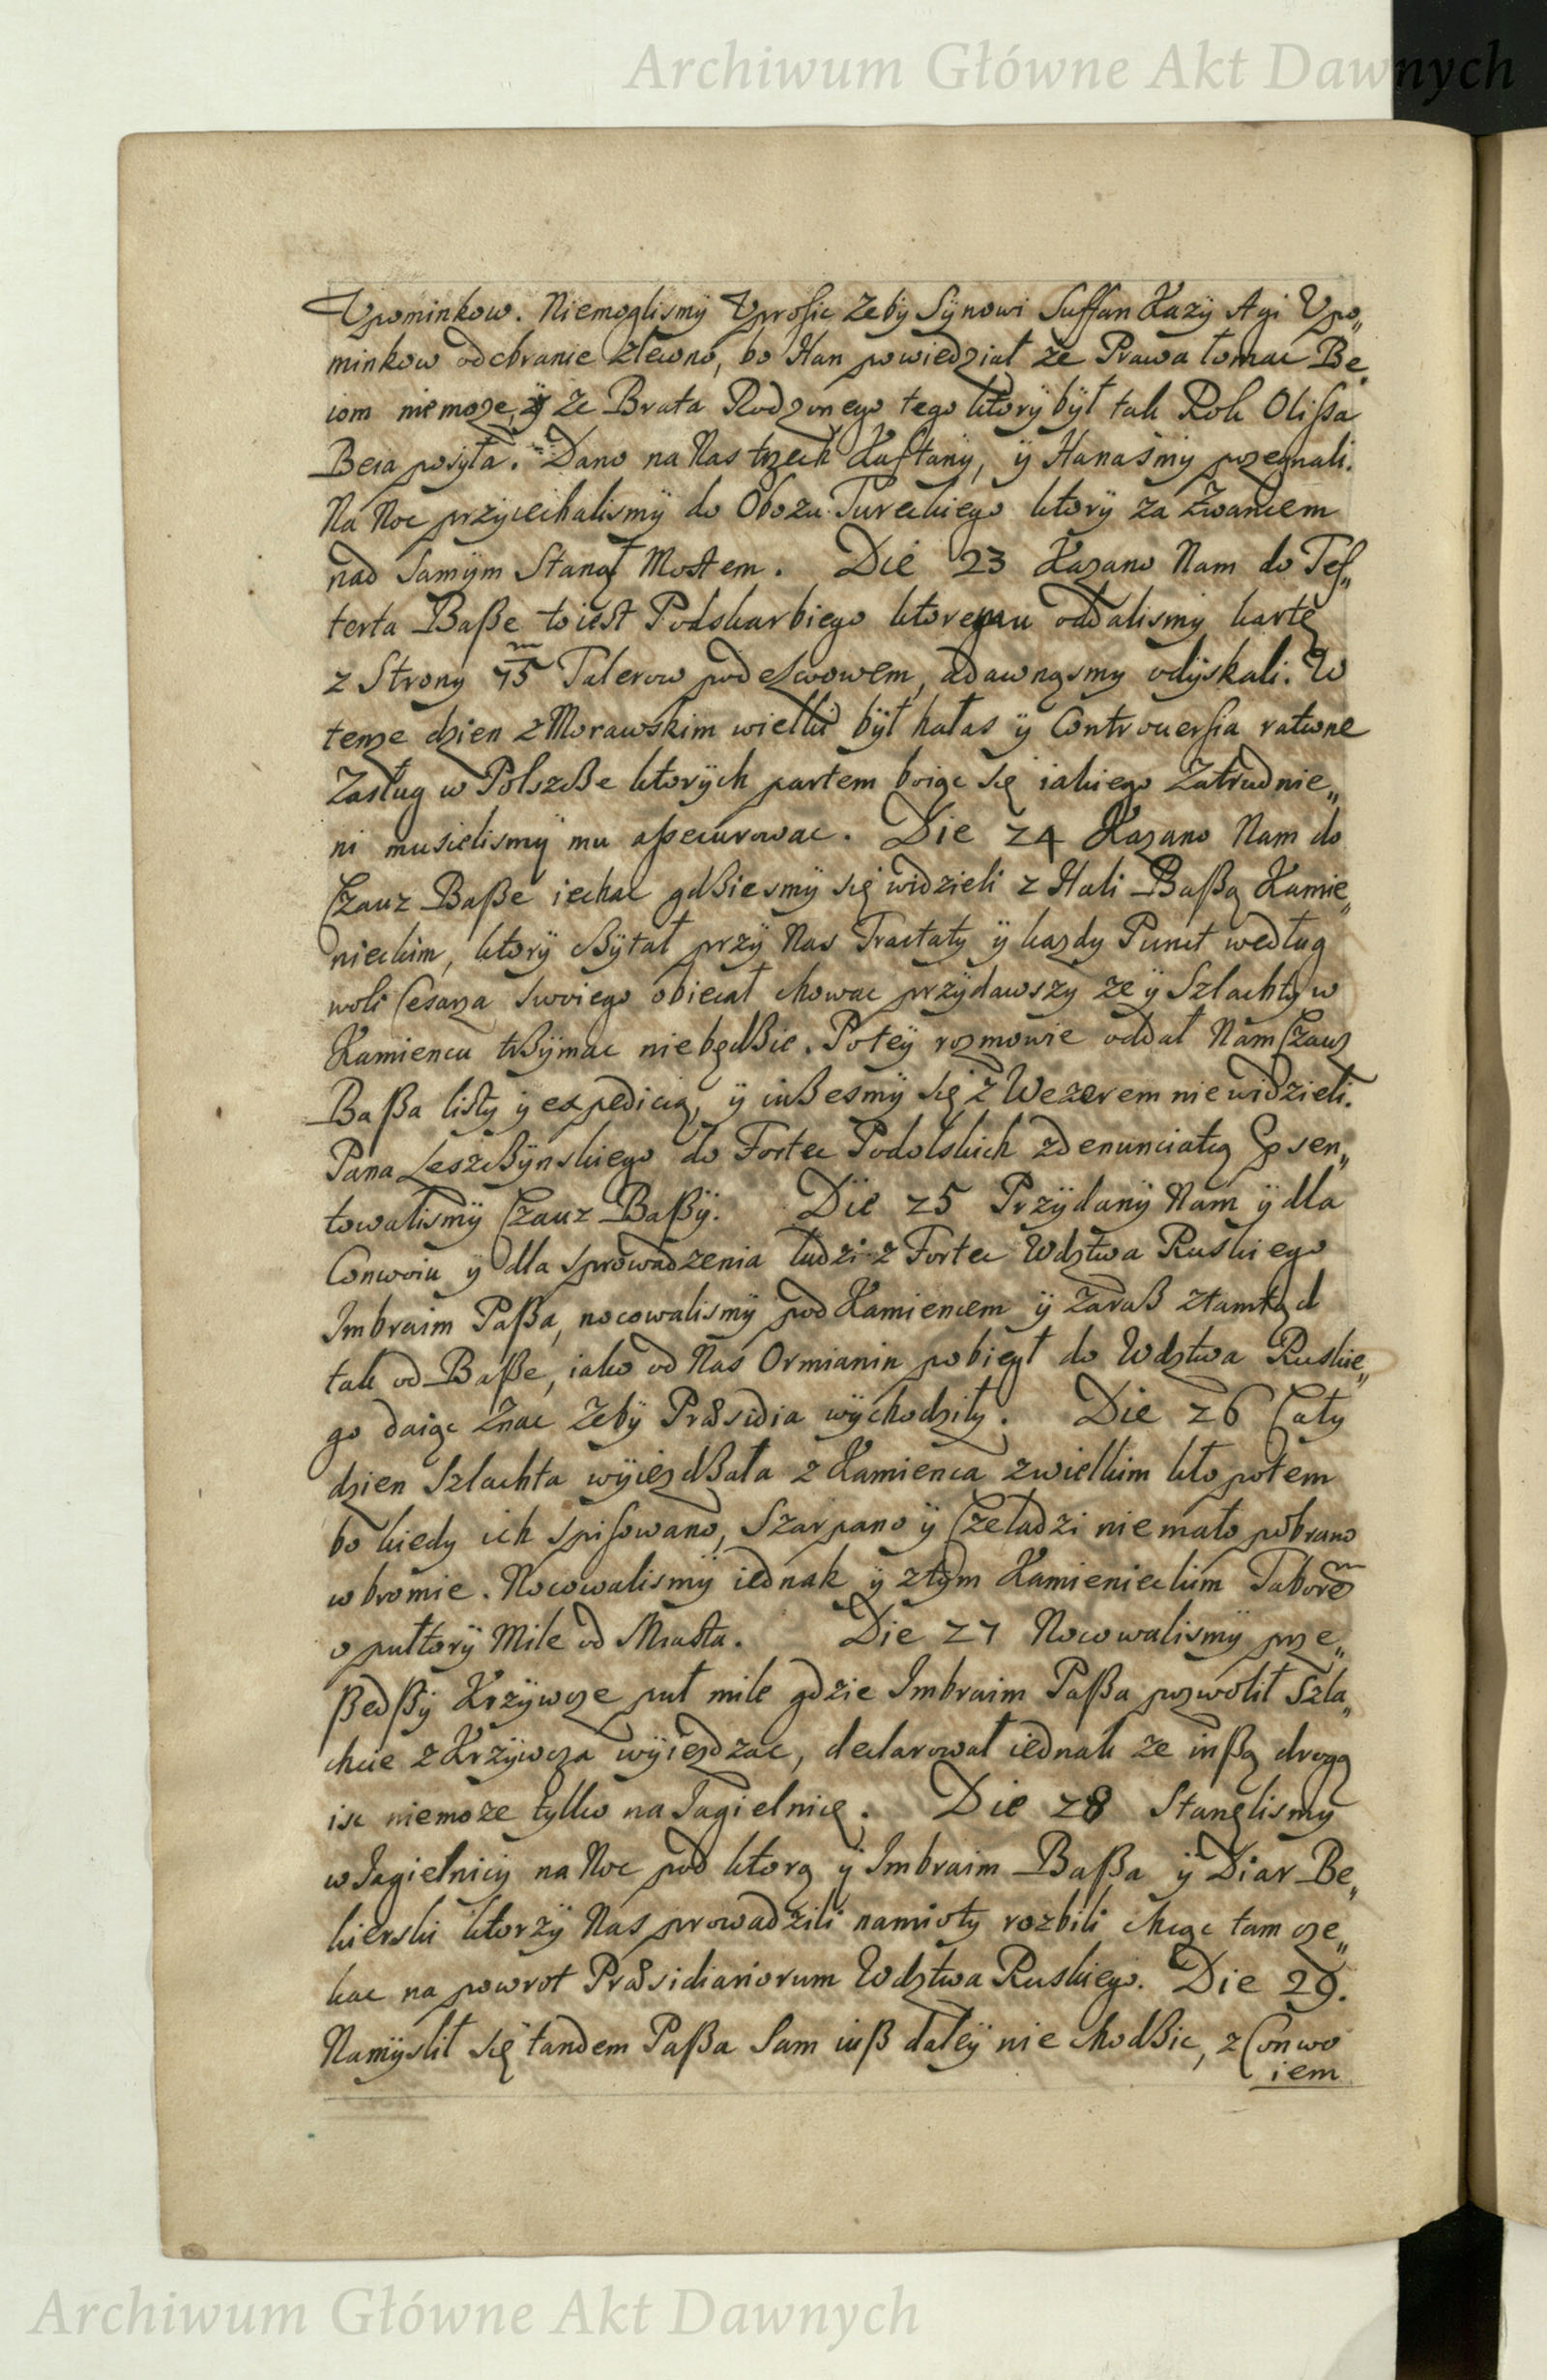 Archiwum Główne Akt Dawnych
Upominkow. Niemoglismÿ Uprosic Zebÿ Sÿnowi Suffan Kazÿ Agi Upo„
minkow odebranie zlecono, bo Han powiedział ze Prawa łomac Be„
iom niemoze, ÿ Ze Brata Rodzonego tego ktorÿ bÿł tak Rok Olissa
Beia posÿła. Dano na Nas trzech Kaftanÿ, ÿ Hanasmÿ pozegnali.
Na Noc przÿiechalismÿ do Obozu Tureckiego ktorÿ za Zwancem
nad Samÿm Stanął Mostem. Die 23 Kazano Nam do Tef„
terta Baße to iest Podskarbiego ktoremu oddalismÿ kartę
z Strony 15 Talerow pod Lwowem, adawnąsmy odÿskali. W
tenze dzien z Morawskim wielki bÿł hałas ÿ Controuersia ratione
Zasług w Polszcße ktorÿch partem boiąc się iakiego Zatrudnie„
ni musielismÿ mu aßecurowac. Die 24 Kazano Nam do
Czauz Baße iechac gdßiesmÿ się widzieli z Hali Baßą Kamie„
nieckim, ktorÿ cßÿtał przÿ Nas Tractatÿ ÿ kazdy Punct według
woli Cesarza swoiego obiecał chowac przÿdawszy ze ÿ Szlachtÿ w
Kamiencu trßÿmac niebędßie. Poteÿ rozmowie oddał Nam Czauz
Baßa listÿ ÿ expedicią, ÿ iußesmÿ się z Wezerem niewidzieli.
Pana Leszcßÿnskiego do Fortec Podolskich zdenunciatią Præsen„
towalismÿ Czauz Baßÿ. Die 25 Przÿdanÿ Nam ÿ dla
Conwoiu ÿ dla sprowadzenia ludzi z Fortec Wdztwa Ruskiego
Imbraim Paßa, nocowalismÿ pod Kamiencem ÿ Zaraß ztamtąd
tak od Baße, iako od Nas Ormianin pobiegł do Wdztwa Ruskie„
go daiąc Znac Zebÿ Præsidia wÿchodziłÿ. Die 26 Całÿ
dzien Szlachta wÿiezdßała z Kamienca z wielkim kłopotem
bo kiedy ich spisowano, Szarpano ÿ Czeladzi niemało pobrano
w bromie. Nocowalismÿ iednak ÿ ztÿm Kamienieckim Taborem
o pułtorÿ Mile od Miasta. Die 27 Nocowalismÿ prze„
ßedßÿ Krzÿwcze puł mile gdzie Imbraim Paßa pozwolił Szla„
chcie z Krzÿwcza wÿiezdzac, declarował iednak ze inßą drogą
isc niemoze tÿlko na Jagielnicę. Die 28 Stanęlismÿ
w Jagielnicÿ na Noc pod ktorą ÿ Imbraim Baßa ÿ Diar Be„
kierski ktorzÿ Nas prowadzili namiotÿ rozbili chcąc tam cze„
kac na powrot Præsidiariorum Wdztwa Ruskiego. Die 29.
Namÿslił się tandem Paßa Sam iuß daleÿ nie chodßic, z Conwo
iem
Archiwum Główne Akt Dawnych